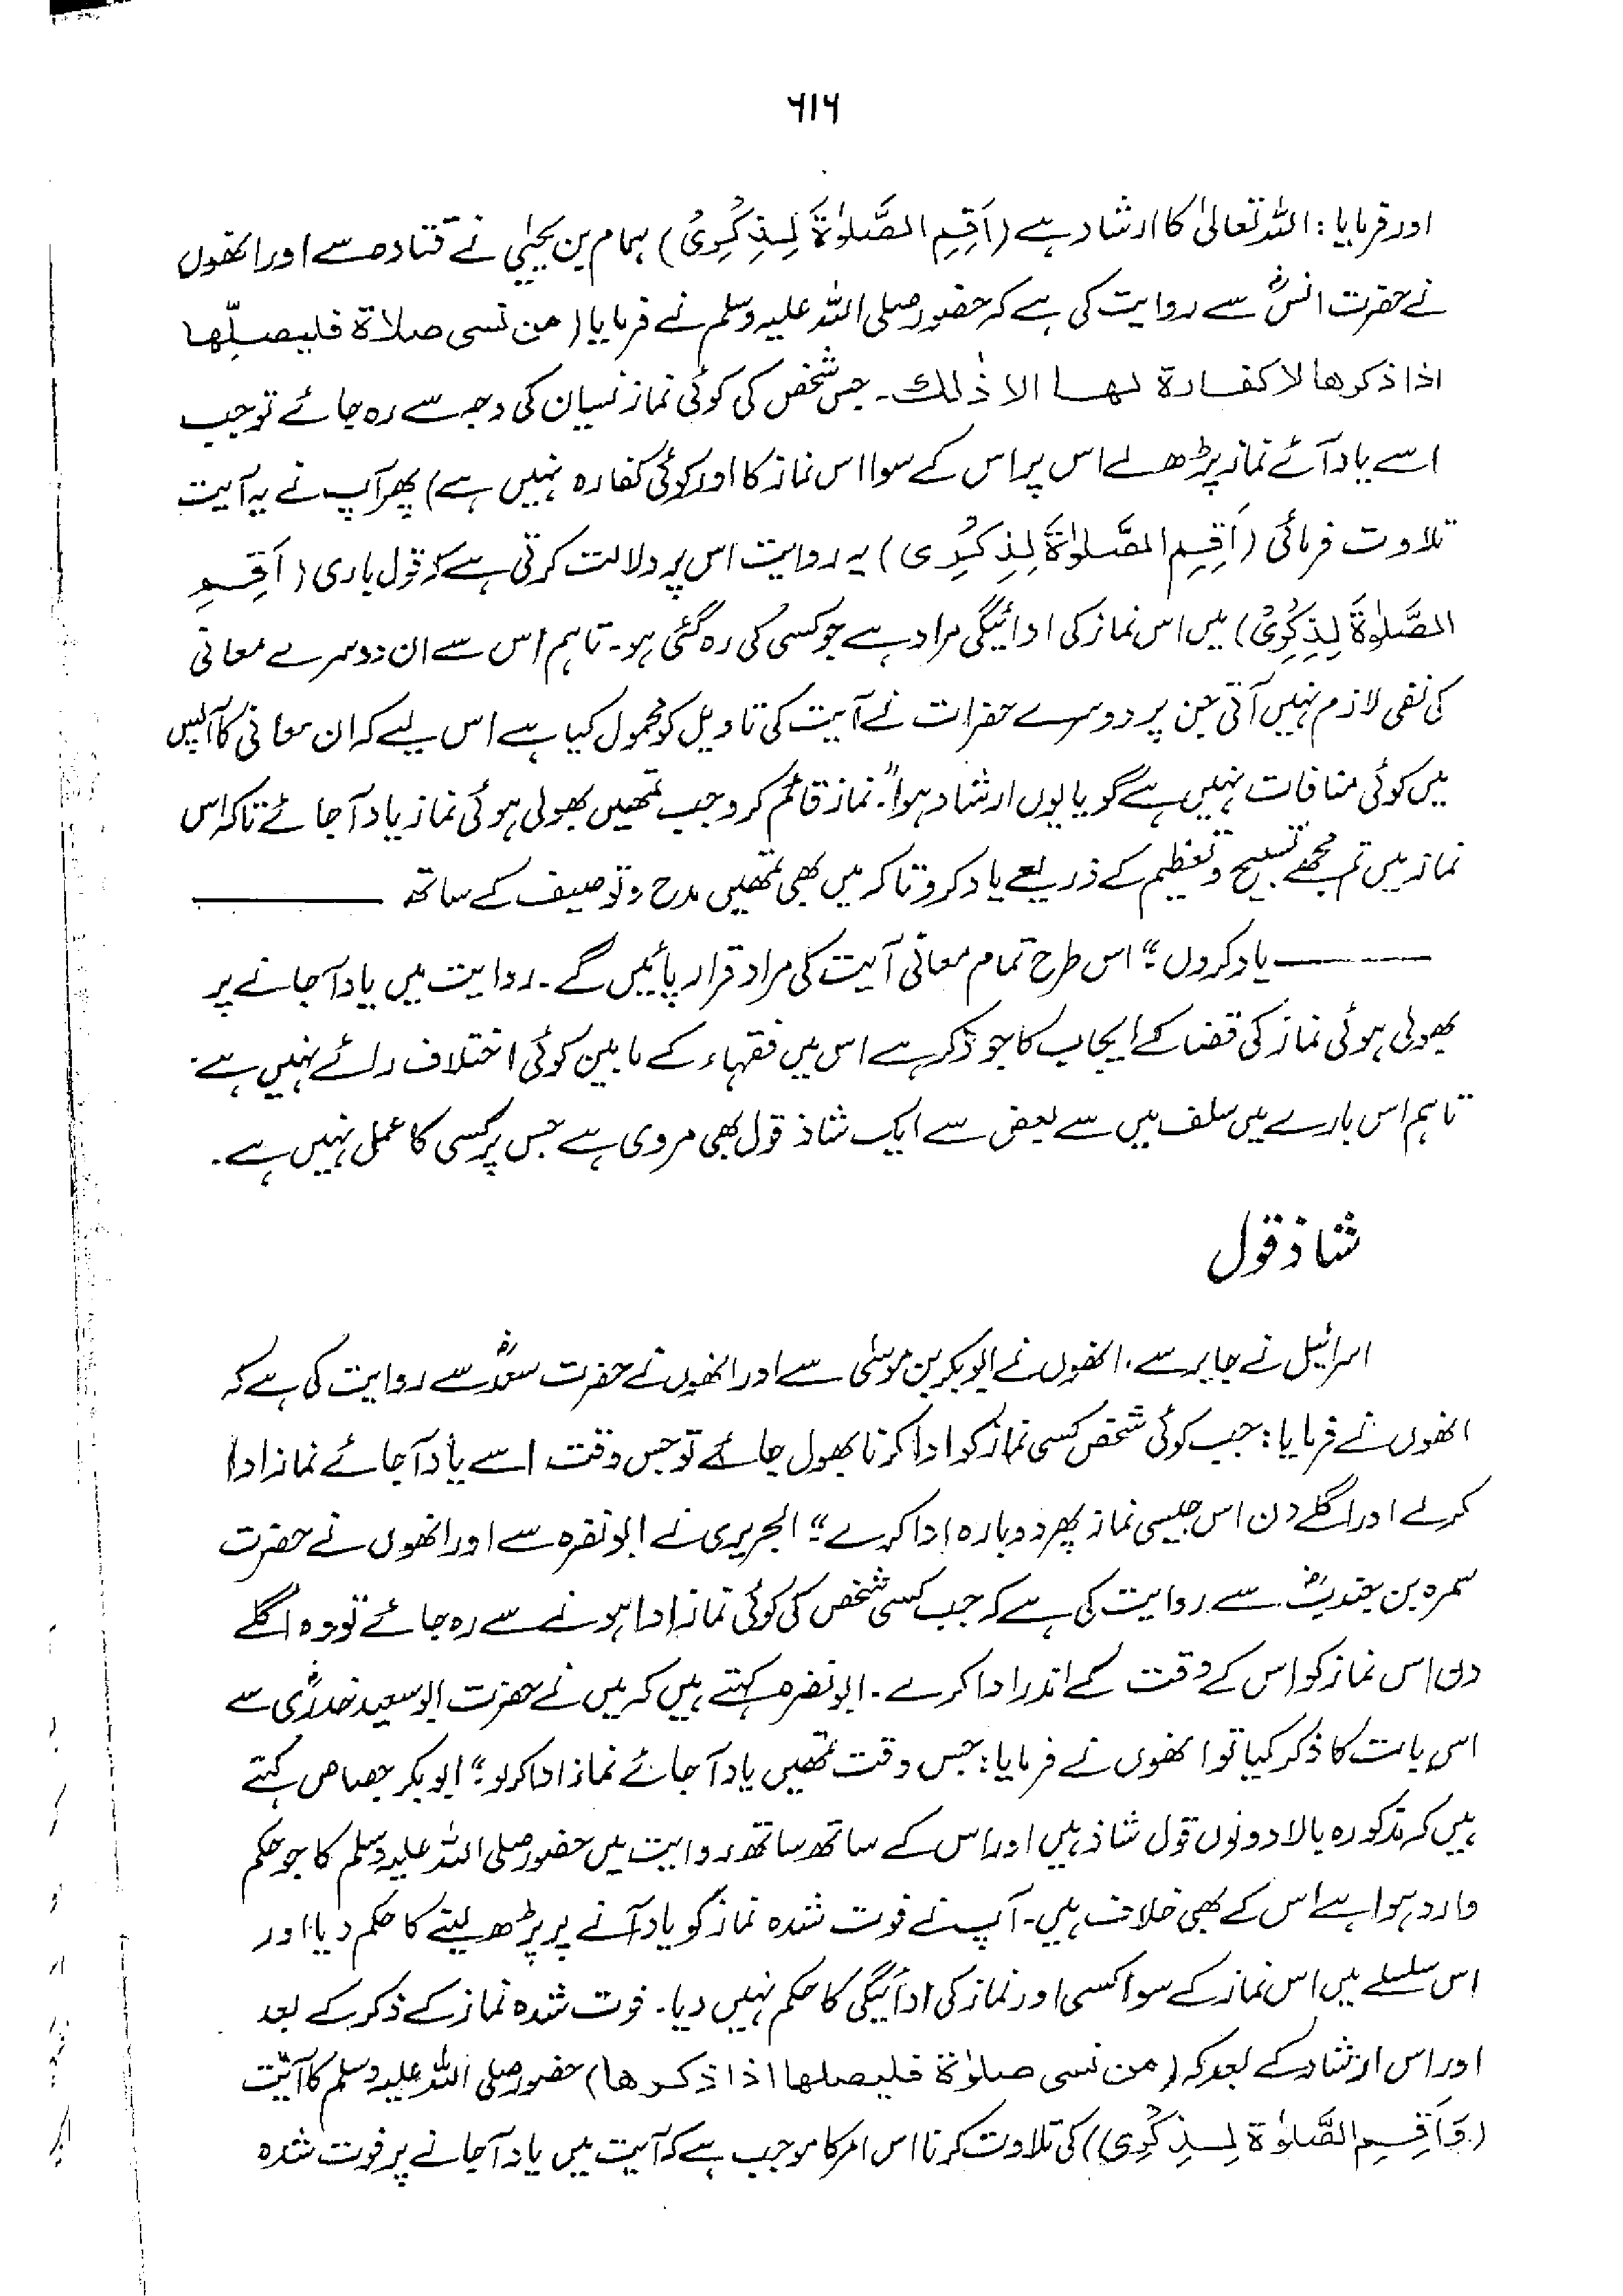 ۶۱۶
اور فرمایا: اللہ تعالیٰ کا ارشاد ہے (اَقِمِ الصَّلوٰةَ لِذِكْرِیْ) ہمام بن یحییٰ نے قتادہ سے اور انھوں
نے حضرت انسؓ سے روایت کی ہے کہ حضور صلی اللہ علیہ وسلم نے فرمایا (من نسی صلاة فلیصلّها
اذا ذکرها لا کفارة لها الا ذٰلك۔ جس شخص کی کوئی نماز نسیان کی وجہ سے رہ جائے تو جب
اسے یاد آئے نماز پڑھ لے اس پر اس کے سوا اس نماز کا اور کوئی کفارہ نہیں ہے) پھر آپ نے یہ آیت
تلاوت فرمائی (اَقِمِ الصَّلوٰةَ لِذِكْرِی) یہ روایت اس پر دلالت کرتی ہے کہ قول باری (اَقِمِ
الصَّلوٰةَ لِذِكْرِیْ) میں اس نماز کی ادائیگی مراد ہے جو کسی کی رہ گئی ہو۔ تاہم اس سے ان دوسرے معانی
کی نفی لازم نہیں آتی جن پر دوسرے حضرات نے آیت کی تاویل کو محمول کیا ہے اس لیے کہ ان معانی کا آپس
میں کوئی منافات نہیں ہے گویا یوں ارشاد ہوا"۔ نماز قائم کرو جب تمھیں بھولی ہوئی نماز یاد آ جائے تاکہ اس
نماز میں تم مجھے تسبیح و تعظیم کے ذریعے یاد کرو تاکہ میں بھی تمھیں مدح و توصیف کے ساتھ ———
——— یاد کروں"۔ اس طرح تمام معانی آیت کی مراد قرار پائیں گے۔ روایت میں یاد آ جانے پر
بھولی ہوئی نماز کی قضا کے ایجاب کا جو ذکر ہے اس میں فقہاء کے مابین کوئی اختلاف رائے نہیں ہے۔
تاہم اس بارے میں سلف میں سے بعض سے ایک شاذ قول بھی مروی ہے جس پر کسی کا عمل نہیں ہے۔
شاذ قول
اسرائیل نے جابر سے، انھوں نے ابوبکر بن موسٰی سے اور انھوں نے حضرت سعدؓ سے روایت کی ہے کہ
انھوں نے فرمایا: جب کوئی شخص کسی نماز کو ادا کرنا بھول جائے تو جس وقت اسے یاد آ جائے نماز ادا
کرلے اور اگلے دن اس جیسی نماز پھر دوبارہ ادا کرے"۔ الجریری نے ابونضرہ سے اور انھوں نے حضرت
سمرہ بن جندبؓ سے روایت کی ہے کہ جب کسی شخص کی کوئی نماز ادا ہونے سے رہ جائے تو وہ اگلے
دن اس نماز کو اس کے وقت کے اندر ادا کرے۔ ابونضرہ کہتے ہیں کہ میں نے حضرت ابو سعید خدریؓ سے
اس بات کا ذکر کیا تو انھوں نے فرمایا: جس وقت تمھیں یاد آ جائے نماز ادا کرلو"۔ ابوبکر جصاص کہتے
ہیں کہ مذکورہ بالا دونوں قول شاذ ہیں اور اس کے ساتھ ساتھ روایت میں حضور صلی اللہ علیہ وسلم کا جو حکم
وارد ہوا ہے اس کے بھی خلاف ہیں۔ آپ نے فوت شدہ نماز کو یاد آنے پر پڑھ لینے کا حکم دیا اور
اس سلسلے میں اس نماز کے سوا کسی اور نماز کی ادائیگی کا حکم نہیں دیا۔ فوت شدہ نماز کے ذکر کے بعد
اور اس ارشاد کے بعد کہ (من نسی صلوٰة فلیصلها اذا ذکرها) حضور صلی اللہ علیہ وسلم کا آیت
(وَاَقِمِ الصَّلوٰةَ لِذِكْرِی) کی تلاوت کرنا اس امر کا موجب ہے کہ آیت میں یاد آ جانے پر فوت شدہ